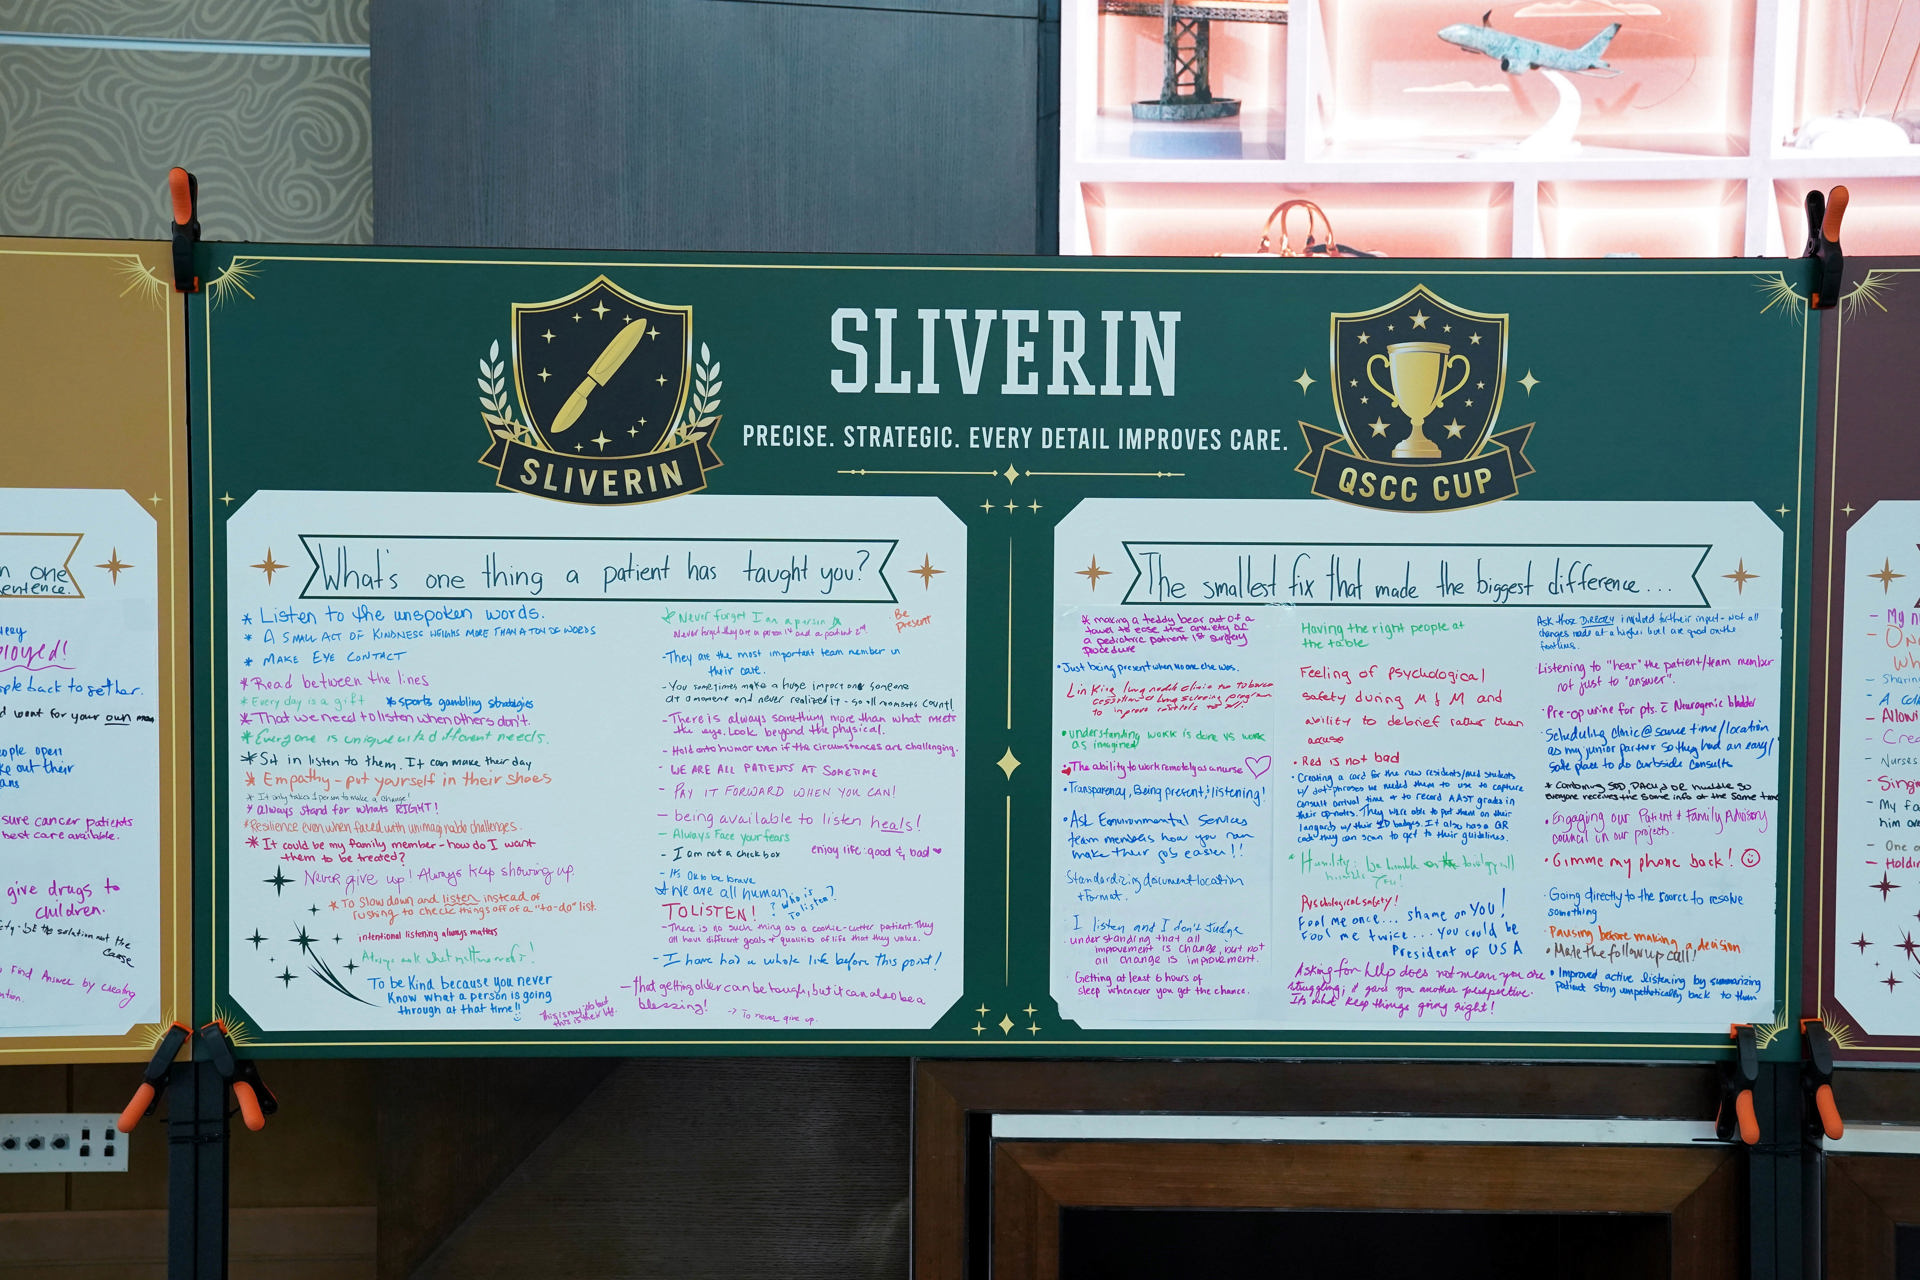 SLIVERIN
PRECISE. STRATEGIC. EVERY DETAIL IMPROVES CARE.
SLIVERIN
QSCC CUP
What's one thing a patient has taught you?
* Listen to the unspoken words.
* A SMALL ACT OF KINDNESS WEIGHS MORE THAN A TON OF WORDS
* MAKE EYE CONTACT
* Read between the lines
* Every day is a gift
* sports gambling strategies
* That we need to listen when others don't.
* Everyone is unique with different needs.
* Sit in listen to them. It can make their day
* Empathy - put yourself in their shoes
* It only takes 1 person to make a change!
* always stand for whats RIGHT!
* Resilience even when faced with unimaginable challenges.
* It could be my family member - how do I want
them to be treated?
Never give up! Always keep showing up.
* To slow down and listen instead of
rushing to check things off of a "to-do" list.
intentional listening always matters
Always ask what matters most!
To be Kind because you never
Know what a person is going
through at that time!!
this is my job but
this is their life.
* Never forget I am a person
Never forget they are a person 1st and a patient 2nd.
Be
present
- They are the most important team member in
their care.
- You sometimes make a huge impact on someone
at a moment and never realized it - so all moments count!
- There is always something more than what meets
the eye. Look beyond the physical.
- Hold onto humor even if the circumstances are challenging.
- WE ARE ALL PATIENTS AT SOMETIME
- PAY IT FORWARD WHEN YOU CAN!
- being available to listen heals!
- Always Face your fears
- I am not a check box
enjoy life: good & bad
- It's OK to be brave
* We are all human.
TO LISTEN!
? Who is ?
To listen?
- There is no such thing as a cookie-cutter patient. They
all have different goals & qualities of life that they value.
- I have had a whole life before this point!
- that getting older can be tough, but it can also be a
blessing!
-> To never give up.
The smallest fix that made the biggest difference...
* making a teddy bear out of a
towel to ease the anxiety of
a pediatric patient 1st surgery
procedure
• Just being present when no one else was.
Linking lung nodule clinic to tobacco
cessation & lung screening program
to improve
• understanding work is done vs work
as imagined
• The ability to work remotely as a nurse
• Transparency, Being present, & listening!
• Ask Environmental Services
team members how you can
make their job easier!!
Standardizing document location
+ format.
I listen and I don't judge
• understanding that all
improvement is change, but not
all change is improvement.
• Getting at least 6 hours of
sleep whenever you get the chance.
Having the right people at
the table
Feeling of psychological
safety during M & M and
ability to debrief rather than
accuse
• Red is not bad
• Creating a card for the new residents/med students
w/ dot phrases we needed them to use to capture
consult arrival time & to record AAST grades in
their op notes. They were able to put them on their
lanyards w/ their ID badges. It also has a QR
code they can scan to get to their guidelines.
* Humility: be humble or the
humble you!
Psychological safety!
Fool me once... shame on YOU!
Fool me twice... you could be
President of USA
Asking for help does not mean you are
struggling; it gives you another perspective.
It's what keep things going right!
Ask those DIRECTLY involved for their input - Not all
changes made at a higher level are good on the
frontlines.
Listening to "hear" the patient/team member
not just to "answer".
• Pre-op urine for pts. c̄ Neurogenic bladder
• Scheduling clinic @ same time/location
as my junior partner so they had an easy/
safe place to do curbside consults
* Combining SDD, PACU & OR huddle so
everyone receives the same info at the same time
• Engaging our Patient & Family Advisory
council in our projects.
• Gimme my phone back!
• Going directly to the source to resolve
something
• Pausing before making a decision
• Made the follow up call!
• Improved active listening by summarizing
patient story empathetically back to them
one
entence.
ployed!
ple back to gether.
d want for your own mom
ople open
ke out their
sure cancer patients
best care available.
give drugs to
children.
be the solution not the
cause
Find Answer by creating